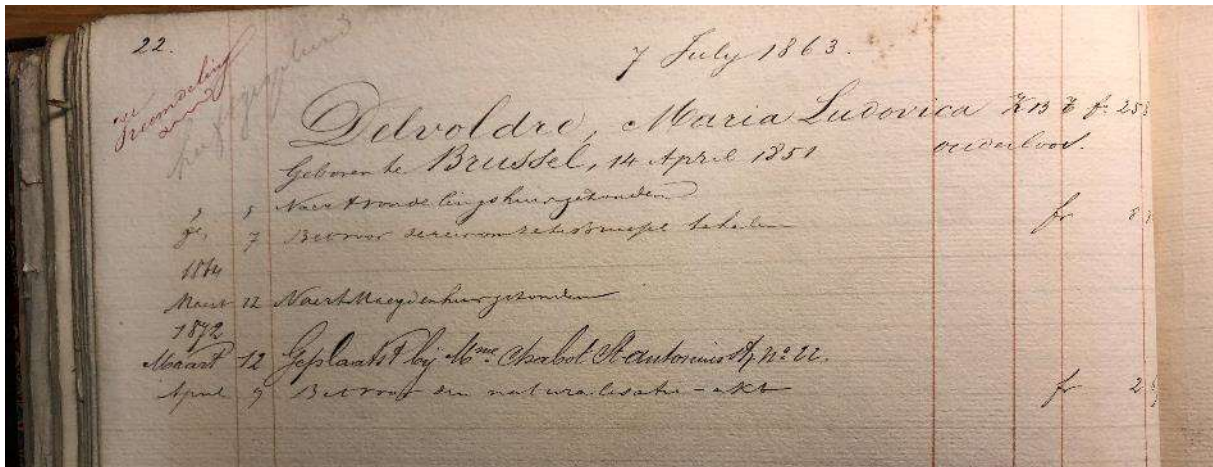 22.
7 July 1863.
Vreemdeling
Delvoldre, Maria Ludovica K 13 fr. 25
Geboren te Brussel, 14 April 1851 ouderloos.
5 Naer t vondelingshuis gezonden
7 Bet voor te Brussel betalen fr 8
1864
Maert 12 Naer t Maegdenhuis gezonden
1872
Maart 12 Geplaatst bij Mme Chabot St antonius str, no 22.
April 9 Bet voor een naturalisatie-akt fr 2